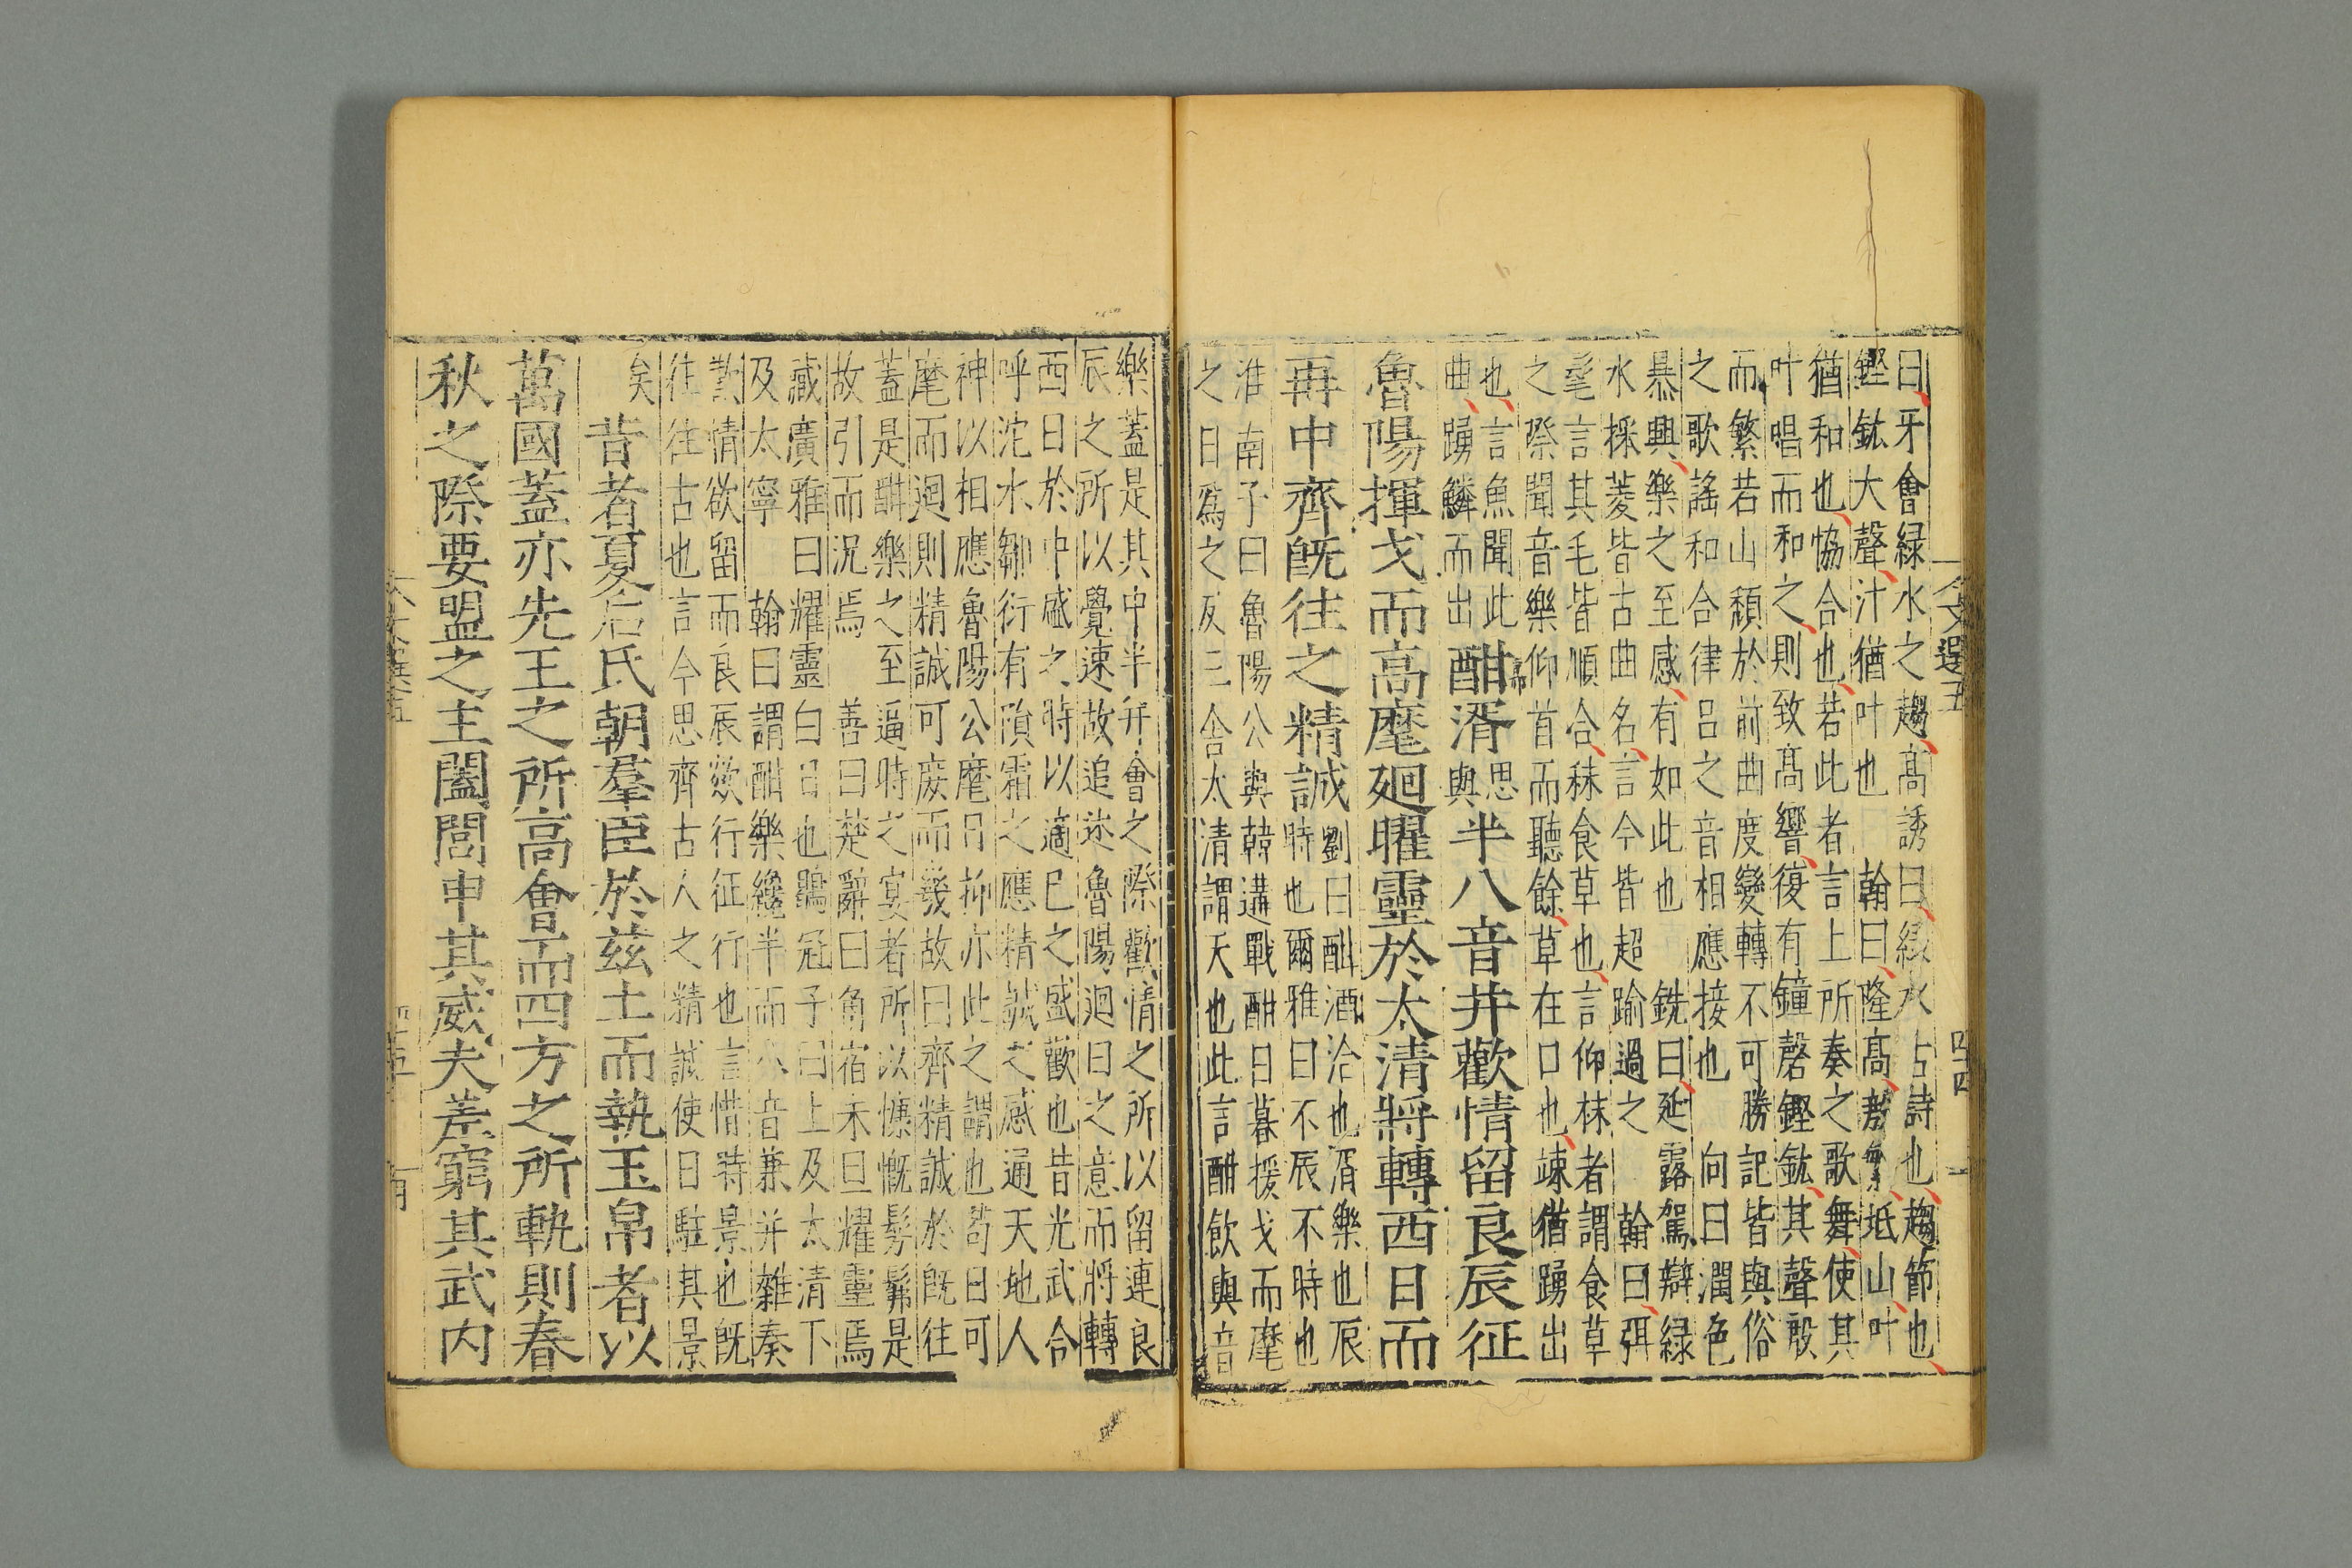 曰牙會緑水之趨高誘曰緑水古詩也趨節也
鏗鈜大聲汁猶叶也 翰曰隆高坻山叶
猶和也恊合也若此者言上所奏之歌舞使其
叶唱而和之則致高響復有鐘磬鏗鈜其聲殷
而繁若山頽於前曲度變轉不可勝記皆與俗
之歌謡和合律呂之音相應接也 向曰潤色
㬥興樂之至感有如此也 銑曰延露駕辯緑
水採菱皆古曲名言今皆超踰過之 翰曰弭
毣言其毛皆順合秣食草也言仰秣者謂食草
之際聞音樂仰首而聽餘草在口也竦猶踊出
也言魚聞此
曲踴鱗而出
酣湑思與半八音并歡情留良辰征
魯陽揮戈而高麾廻曜靈於太清將轉西日而
再中齊旣往之精誠
劉曰酣酒洽也湑樂也辰
時也爾雅曰不辰不時也
淮南子曰魯陽公與韓遘戰酣日暮援戈而麾
之日爲之反三舍太清謂天也此言酣飲與音
文選五
四四
樂蓋是其中半并會之際歡情之所以留連良
辰之所以覺速故追述魯陽迴日之意而將轉
西日於中盛之時以適已之盛歡也昔光武合
呼沱水鄒衍有隕霜之應精誠之感通天地人
神以相應魯陽公麾日抑亦此之謂也苟日可
麾而迴則精誠可庻而幾故曰齊精誠於旣往
蓋是酣樂之至逼時之宴者所以慷慨髣髴是
故引而況焉 善曰楚辭曰角宿未旦耀靈焉
藏廣雅曰耀靈白日也鶡冠子曰上及太清下
及太寧 翰曰謂酣樂纔半而八音兼并雜奏
歡情欲留而良辰欻行征行也言惜時景也旣
往往古也言今思齊古人之精誠使日駐其景
矣
昔者夏后氏朝羣臣於兹土而執玉帛者以
萬國蓋亦先王之所高會而四方之所軌則春
秋之際要盟之主闔閭申其威夫差窮其武内